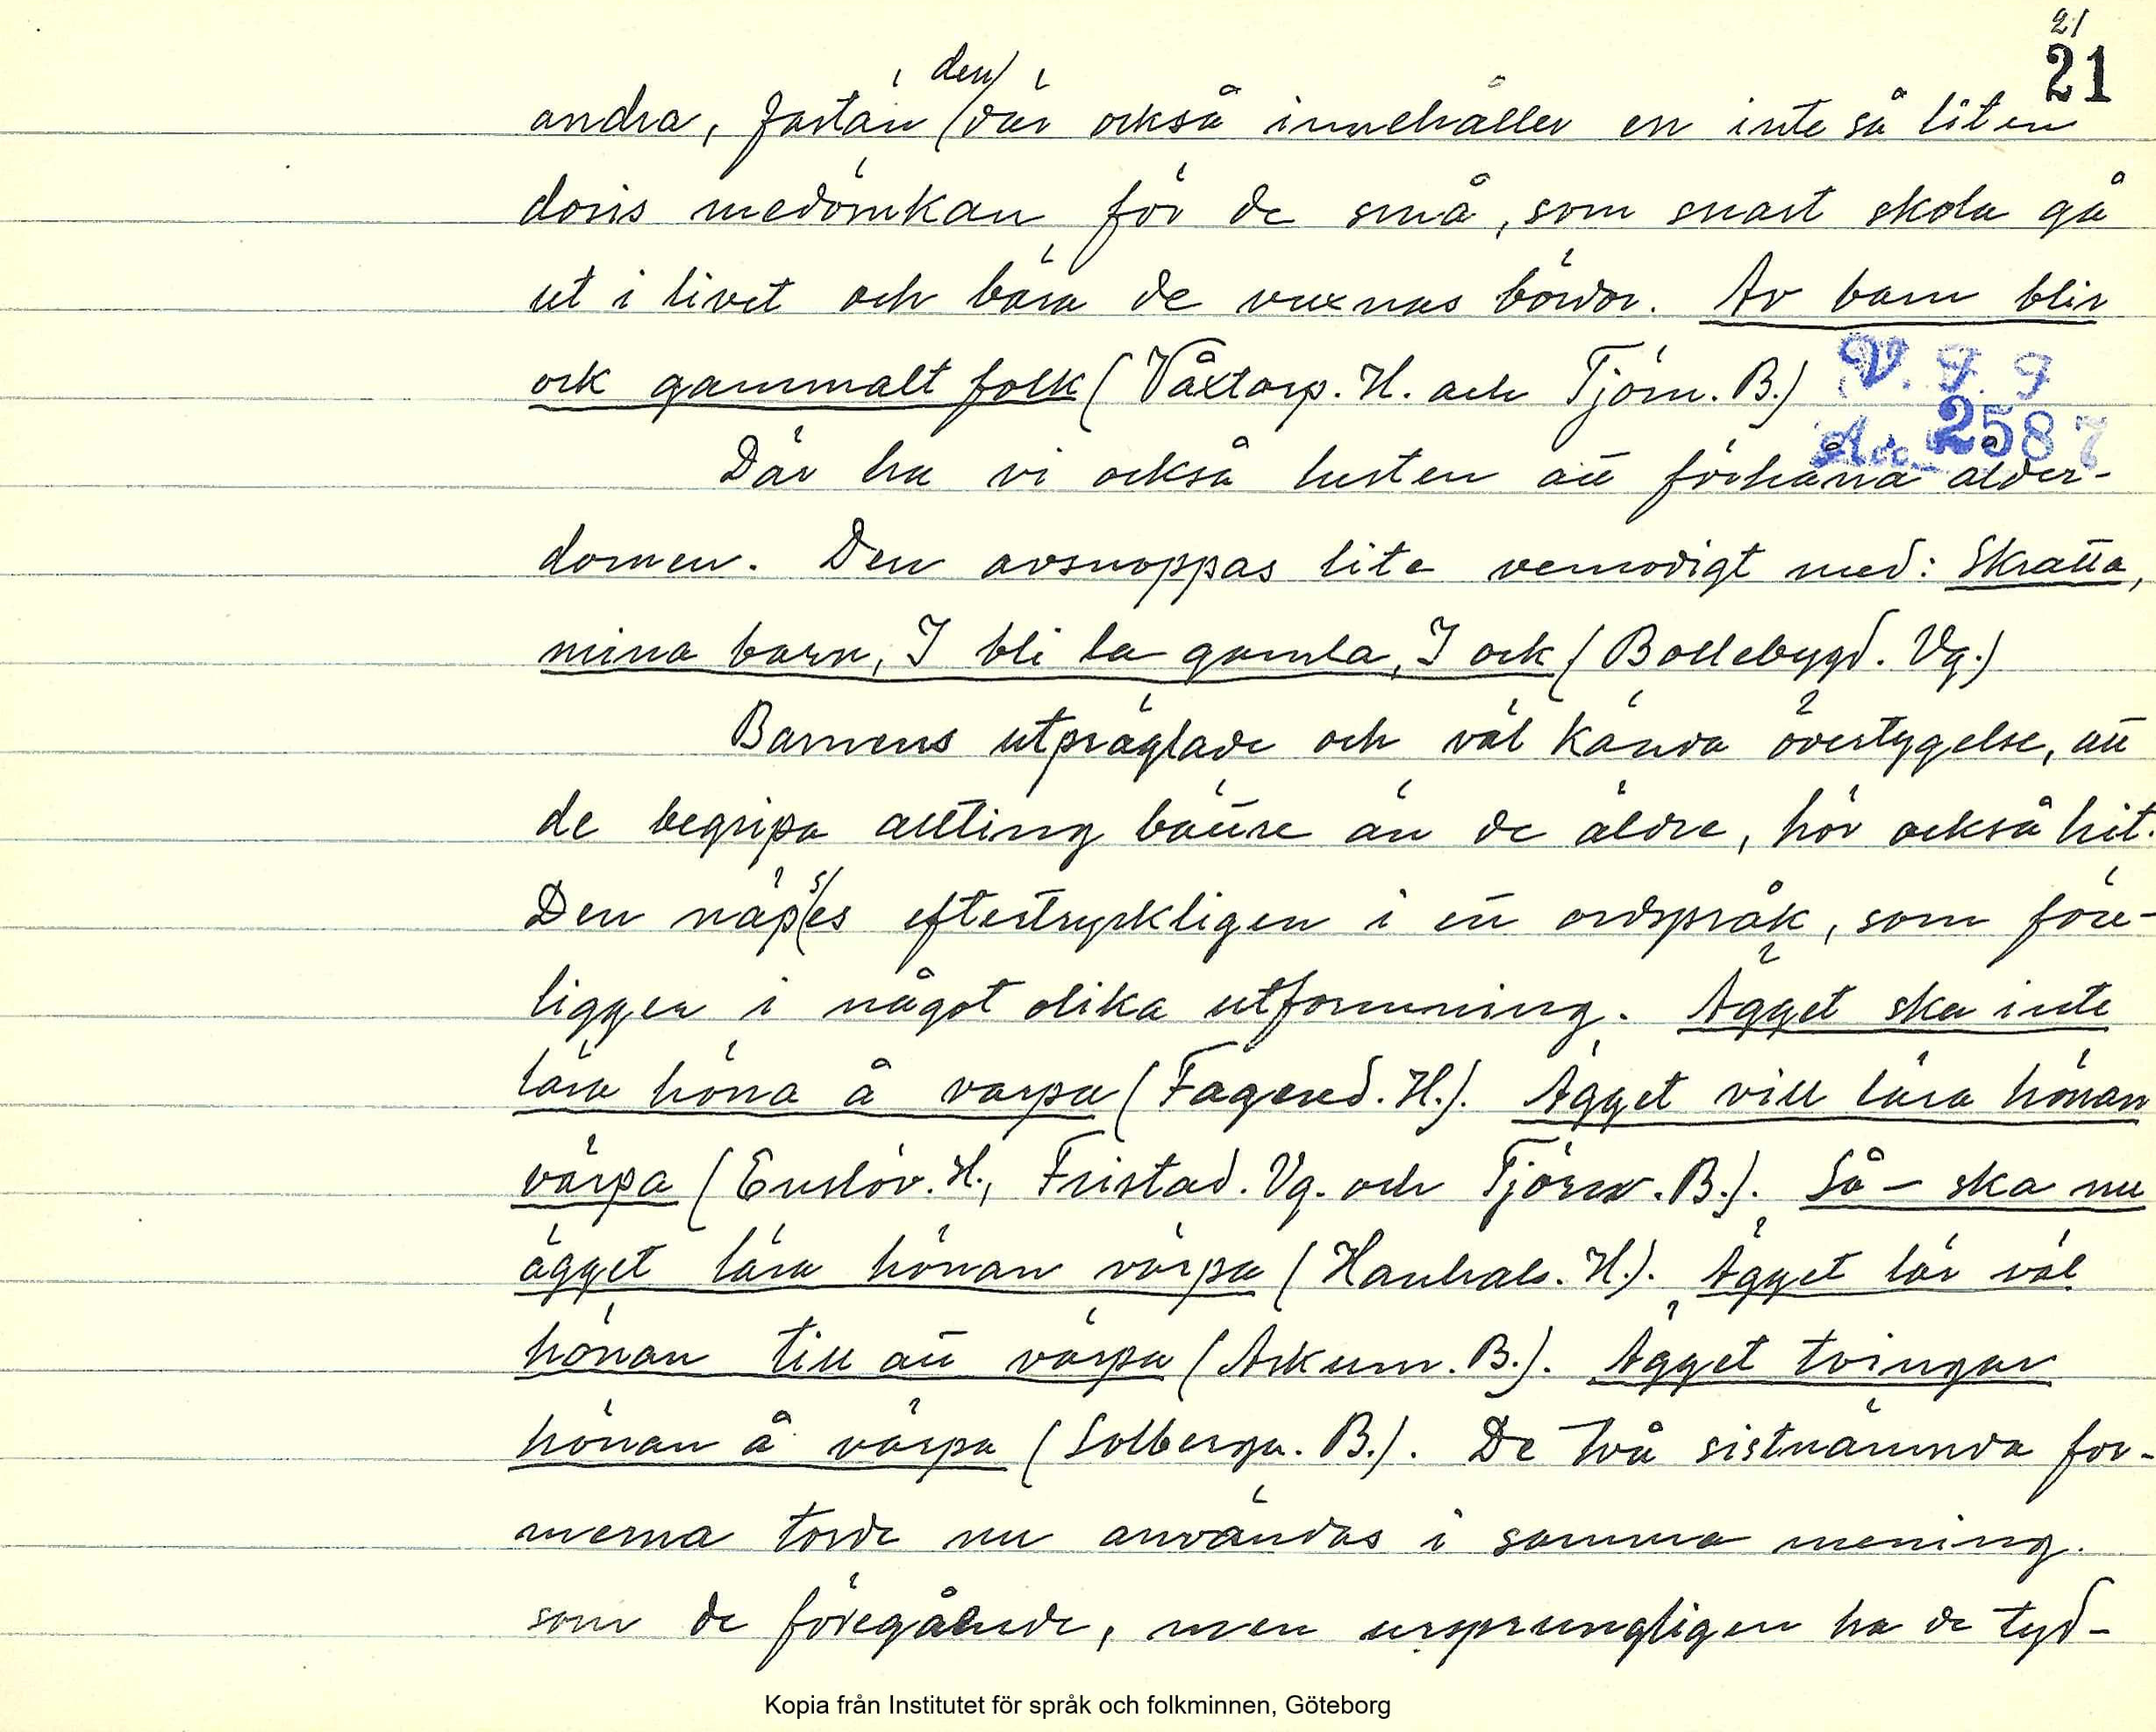 21
21
andra, fastän den där också innehåller en inte så liten
dosis medömkan för de små, som snart skola gå
ut i livet och bära de vuxnas bördor. Av barn blir
ock gammalt folk (Våxtorp. H. och Tjörn. B.)
V. F. F
Acc. 2587
Där ha vi också lusten att förhåna ålder-
domen. Den avsnoppas lite vemodigt med: Skratta,
mina barn, I bli la gamla, I ock (Bollebygd. Vg.)
Barnens utpräglade och väl kända övertygelse, att
de begripa allting bättre än de äldre, hör också hit.
Den näpses eftertryckligen i ett ordspråk, som före-
ligger i något olika utformning. Ägget ska inte
lära höna å varpa (Fagered. H.). Ägget vill lära hönan
värpa (Enslöv. H., Fristad. Vg. och Tjörn. B.). Så – ska nu
ägget lära hönan värpa (Hanhals. H.). Ägget lär väl
hönan till att värpa (Askum. B.). Ägget tvingar
hönan å värpa (Solberga. B.). De två sistnämnda for-
merna torde nu användas i samma mening
som de föregående, men ursprungligen ha de tyd-
Kopia från Institutet för språk och folkminnen, Göteborg